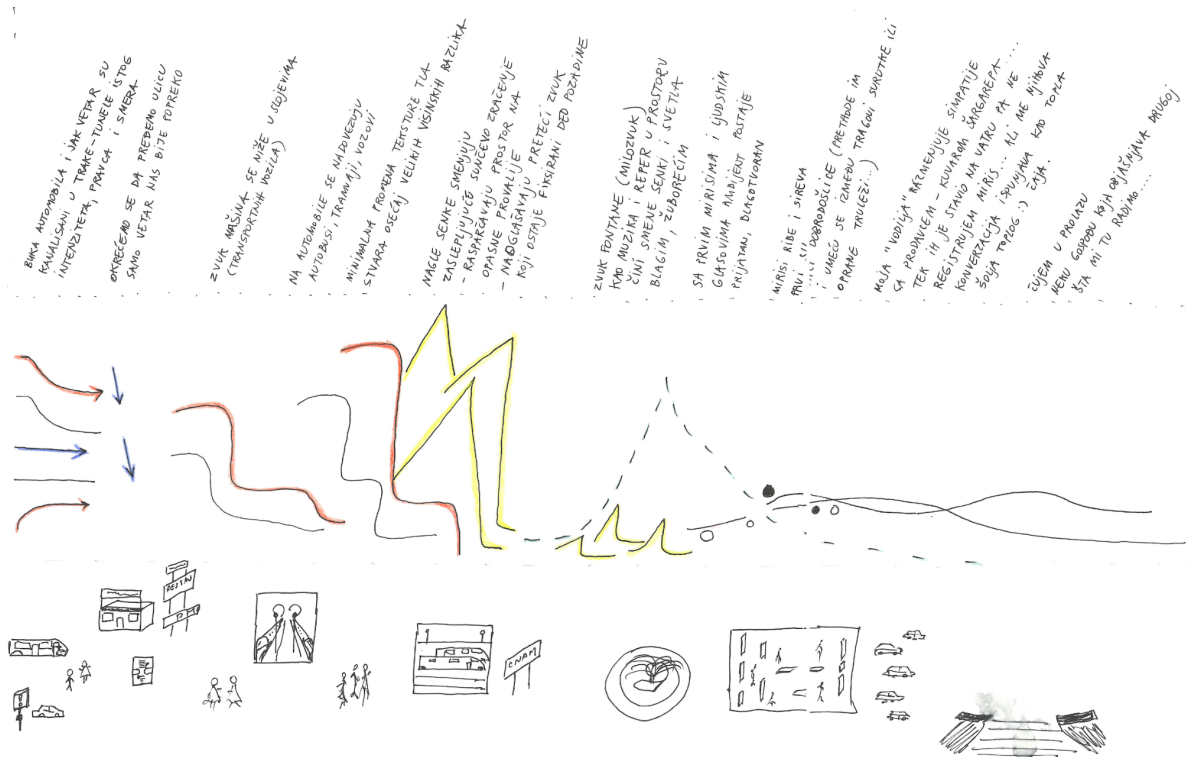 BUKA AUTOMOBILA I JAK VETAR SU
KANALISANI U TRAKE-TUNELE ISTOG
INTENZITETA, PRAVCA I SMERA
OKREĆEMO SE DA PREĐEMO ULICU
SAMO VETAR NAS BIJE POPREKO
ZVUK MAŠINA SE NIŽE U SLOJEVIMA
(TRANSPORTNIH VOZILA)
NA AUTOMOBILE SE NADOVEZUJU
AUTOBUSI, TRAMVAJI, VOZOVI
MINIMALNA PROMENA TEKSTURE TLA
STVARA OSEĆAJ VELIKIH VISINSKIH RAZLIKA
NAGLE SENKE SMENJUJU
ZASLEPLJUJUĆE SUNČEVO ZRAČENJE
- RASPARČAVAJU PROSTOR NA
OPASNE PROVALIJE
- NADGLAŠAVAJU PRETEĆI ZVUK
KOJI OSTAJE FIKSIRANI DEO POZADINE
ZVUK FONTANE (MILOZVUK)
KAO MUZIKA I REPER U PROSTORU
ČINI SMENE SENKI I SVETLA
BLAGIM, ŽUBOREĆIM
SA PRVIM MIRISIMA I LJUDSKIM
GLASOVIMA AMBIJENT POSTAJE
PRIJATAN, BLAGOTVORAN
MIRISI RIBE I SIREVA
PRVI DOBRODOŠLICE (PRETHODE IM
I UMEĆU SE IZMEĐU TRAGOVI SURUTKE ILI
OPRANE TRULEŽI...)
MOJA "VODILJA" RAZMENJUJE SIMPATIJE
SA PRODAVCEM - KUVAROM ŠARGAREPA....
TEK IH JE STAVIO NA VATRU PA NE
REGISTRUJEM MIRIS... ALI ME NJIHOVA
KONVERZACIJA ISPUNJAVA KAO TOPLA
ŠOLJA TOPLOG :) ČAJA.
ČUJEM U PROLAZU
NEKU GOSPOĐU KOJA OBJAŠNJAVA DRUGOJ
ŠTA MI TU RADIMO.....
CNAM